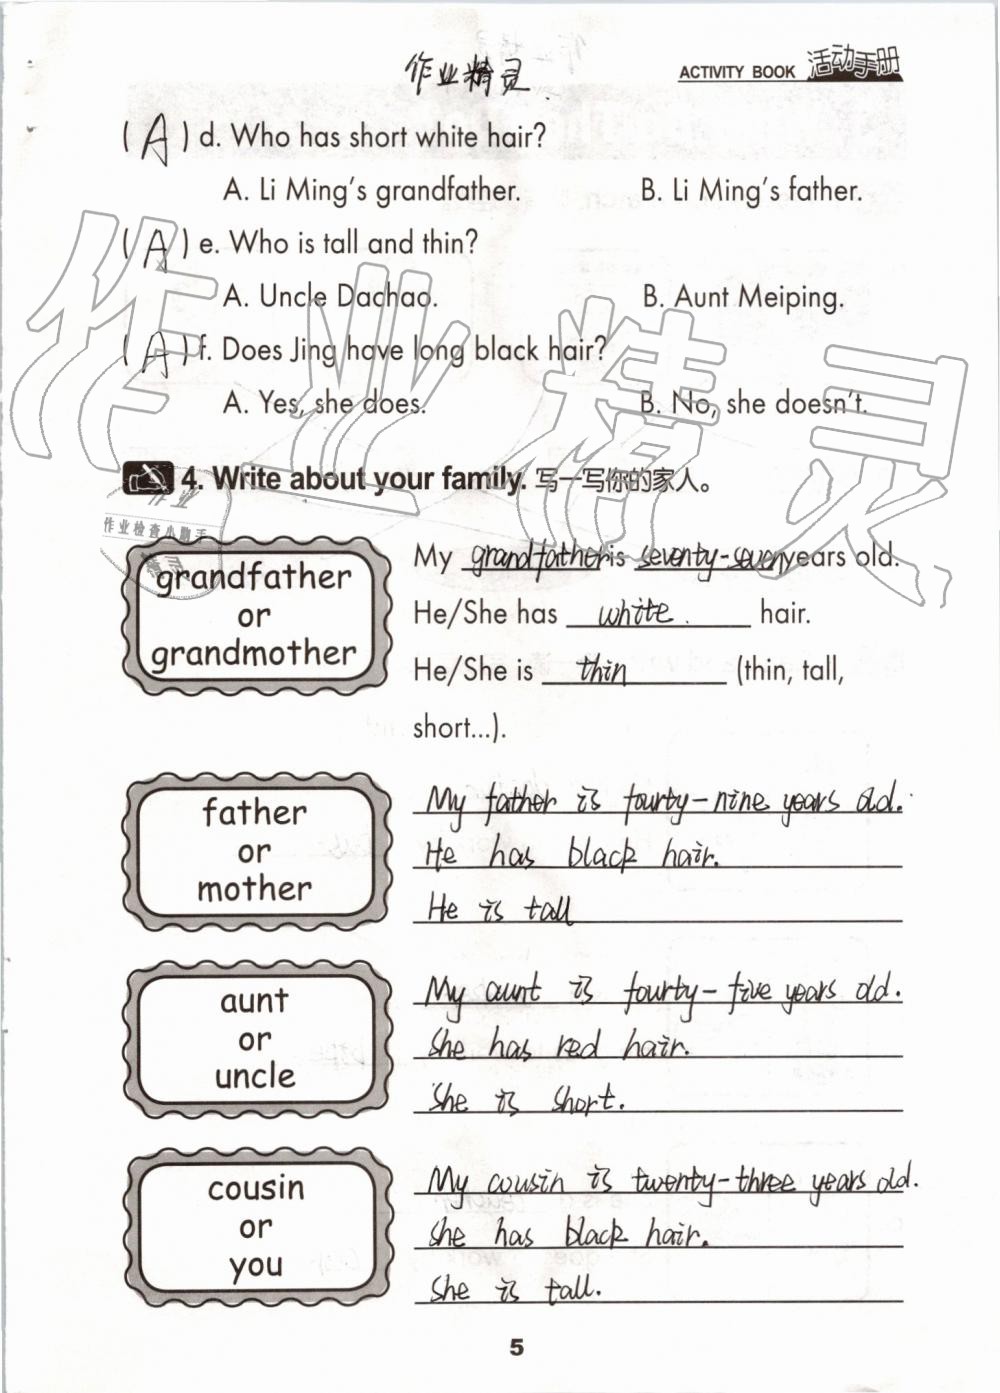 作业精灵
ACTIVITY BOOK 活动手册
( A ) d. Who has short white hair?
A. Li Ming's grandfather. B. Li Ming's father.
( A ) e. Who is tall and thin?
A. Uncle Dachao. B. Aunt Meiping.
( A ) f. Does Jing have long black hair?
A. Yes, she does. B. No, she doesn't.
作业精灵
4. Write about your family. 写一写你的家人。
作业
作业检查小助手
精灵
grandfather
or
grandmother
My grandfather is seventy-seven years old.
He/She has white. hair.
He/She is thin (thin, tall,
short...).
father
or
mother
My father is fourty-nine years old.
He has black hair.
He is tall
aunt
or
uncle
My aunt is fourty-five years old.
She has red hair.
She is short.
cousin
or
you
My cousin is twenty-three years old.
She has black hair.
She is tall.
5